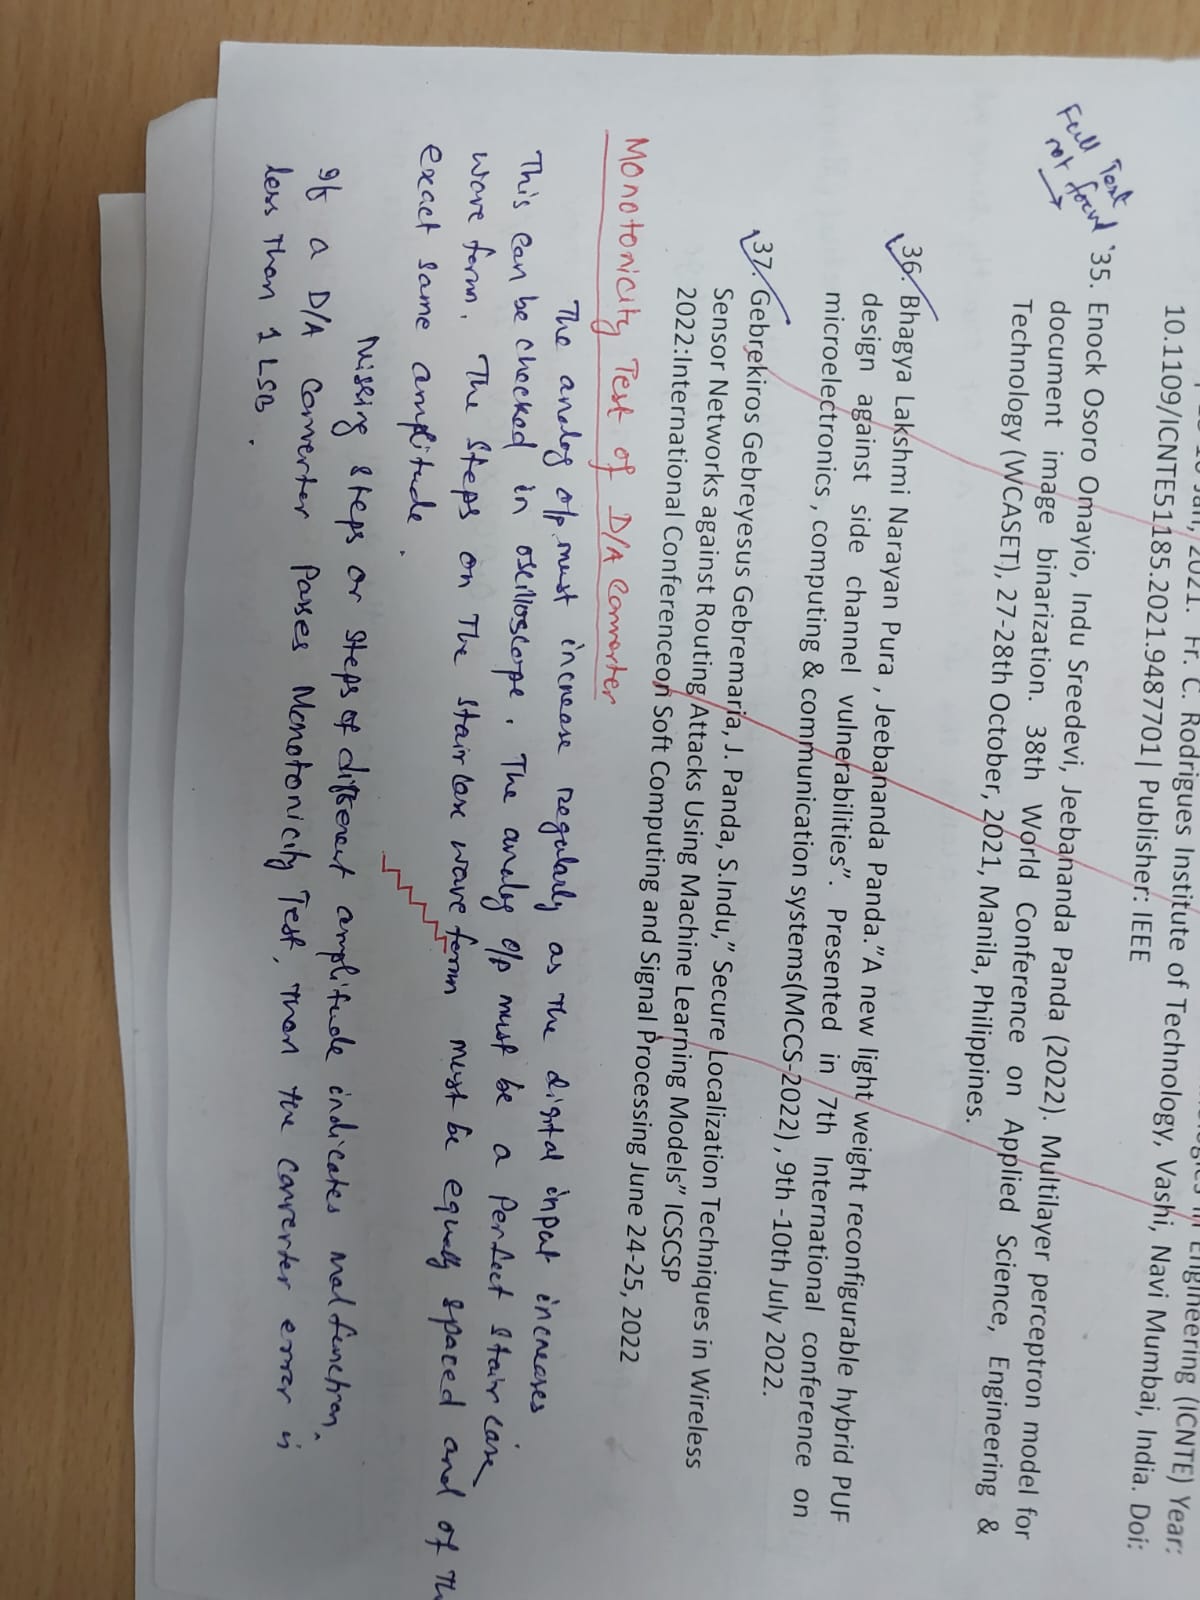 Jan, 2021. Fr. C. Rodrigues Institute of Technology, Vashi, Navi Mumbai, India. Doi:
in Engineering (ICNTE) Year:
10.1109/ICNTE51185.2021.9487701| Publisher: IEEE
Full Text
not found
35. Enock Osoro Omayio, Indu Sreedevi, Jeebananda Panda (2022). Multilayer perceptron model for
document image binarization. 38th World Conference on Applied Science, Engineering &
Technology (WCASET), 27-28th October, 2021, Manila, Philippines.
36. Bhagya Lakshmi Narayan Pura , Jeebananda Panda.”A new light weight reconfigurable hybrid PUF
design against side channel vulnerabilities”. Presented in 7th International conference on
microelectronics , computing & communication systems(MCCS-2022) , 9th -10th July 2022.
37. Gebrekiros Gebreyesus Gebremaria, J. Panda, S.Indu,” Secure Localization Techniques in Wireless
Sensor Networks against Routing Attacks Using Machine Learning Models” ICSCSP
2022:International Conferenceon Soft Computing and Signal Processing June 24-25, 2022
Monotonicity Test of D/A Converter
The analog o/p must increase regularly as the digital input increases
This can be checked in oscilloscope. The analog o/p must be a perfect stair case
wave form. The steps on the stair case wave form must be equally spaced and of the
exact same amplitude.
Missing steps or steps of different amplitude indicates malfunction.
If a D/A converter passes Monotonicity Test, then the converter error is
less than 1 LSB.